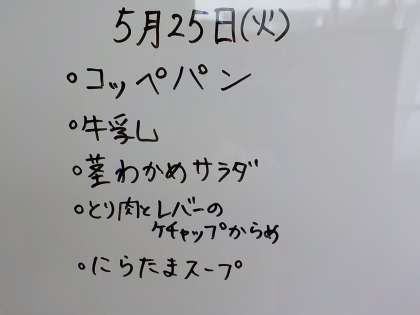 5月25日(火)
•コッペパン
•牛乳
•茎わかめサラダ
•とり肉とレバーの
ケチャップからめ
•にらたまスープ